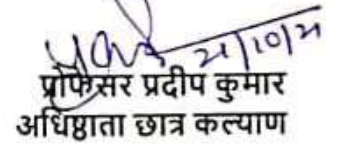 21/10/21
प्रोफेसर प्रदीप कुमार
अधिष्ठाता छात्र कल्याण